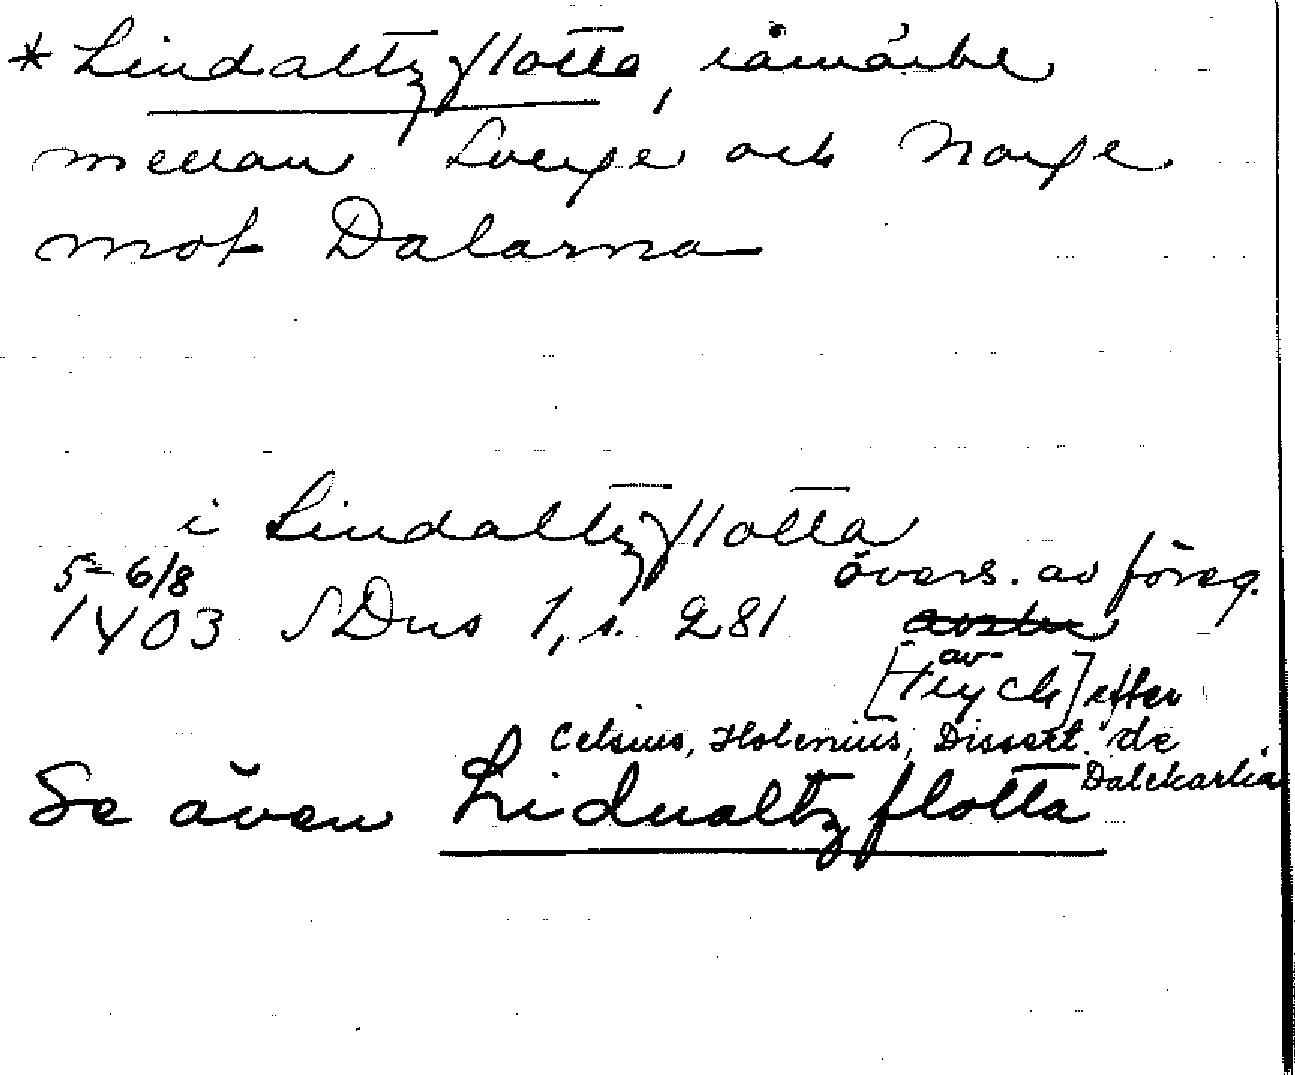 * Lindaltzflotta, råmärke
mellan Sverge och Norge
mot Dalarna
i Lindaltzflotta
5-6/8 övers. av föreg.
1403 SDns 1, s. 281
av
[tryck] efter
Celsius, Holenius, Dissert. de
Dalekarlia
Se även Lidualtzflotta